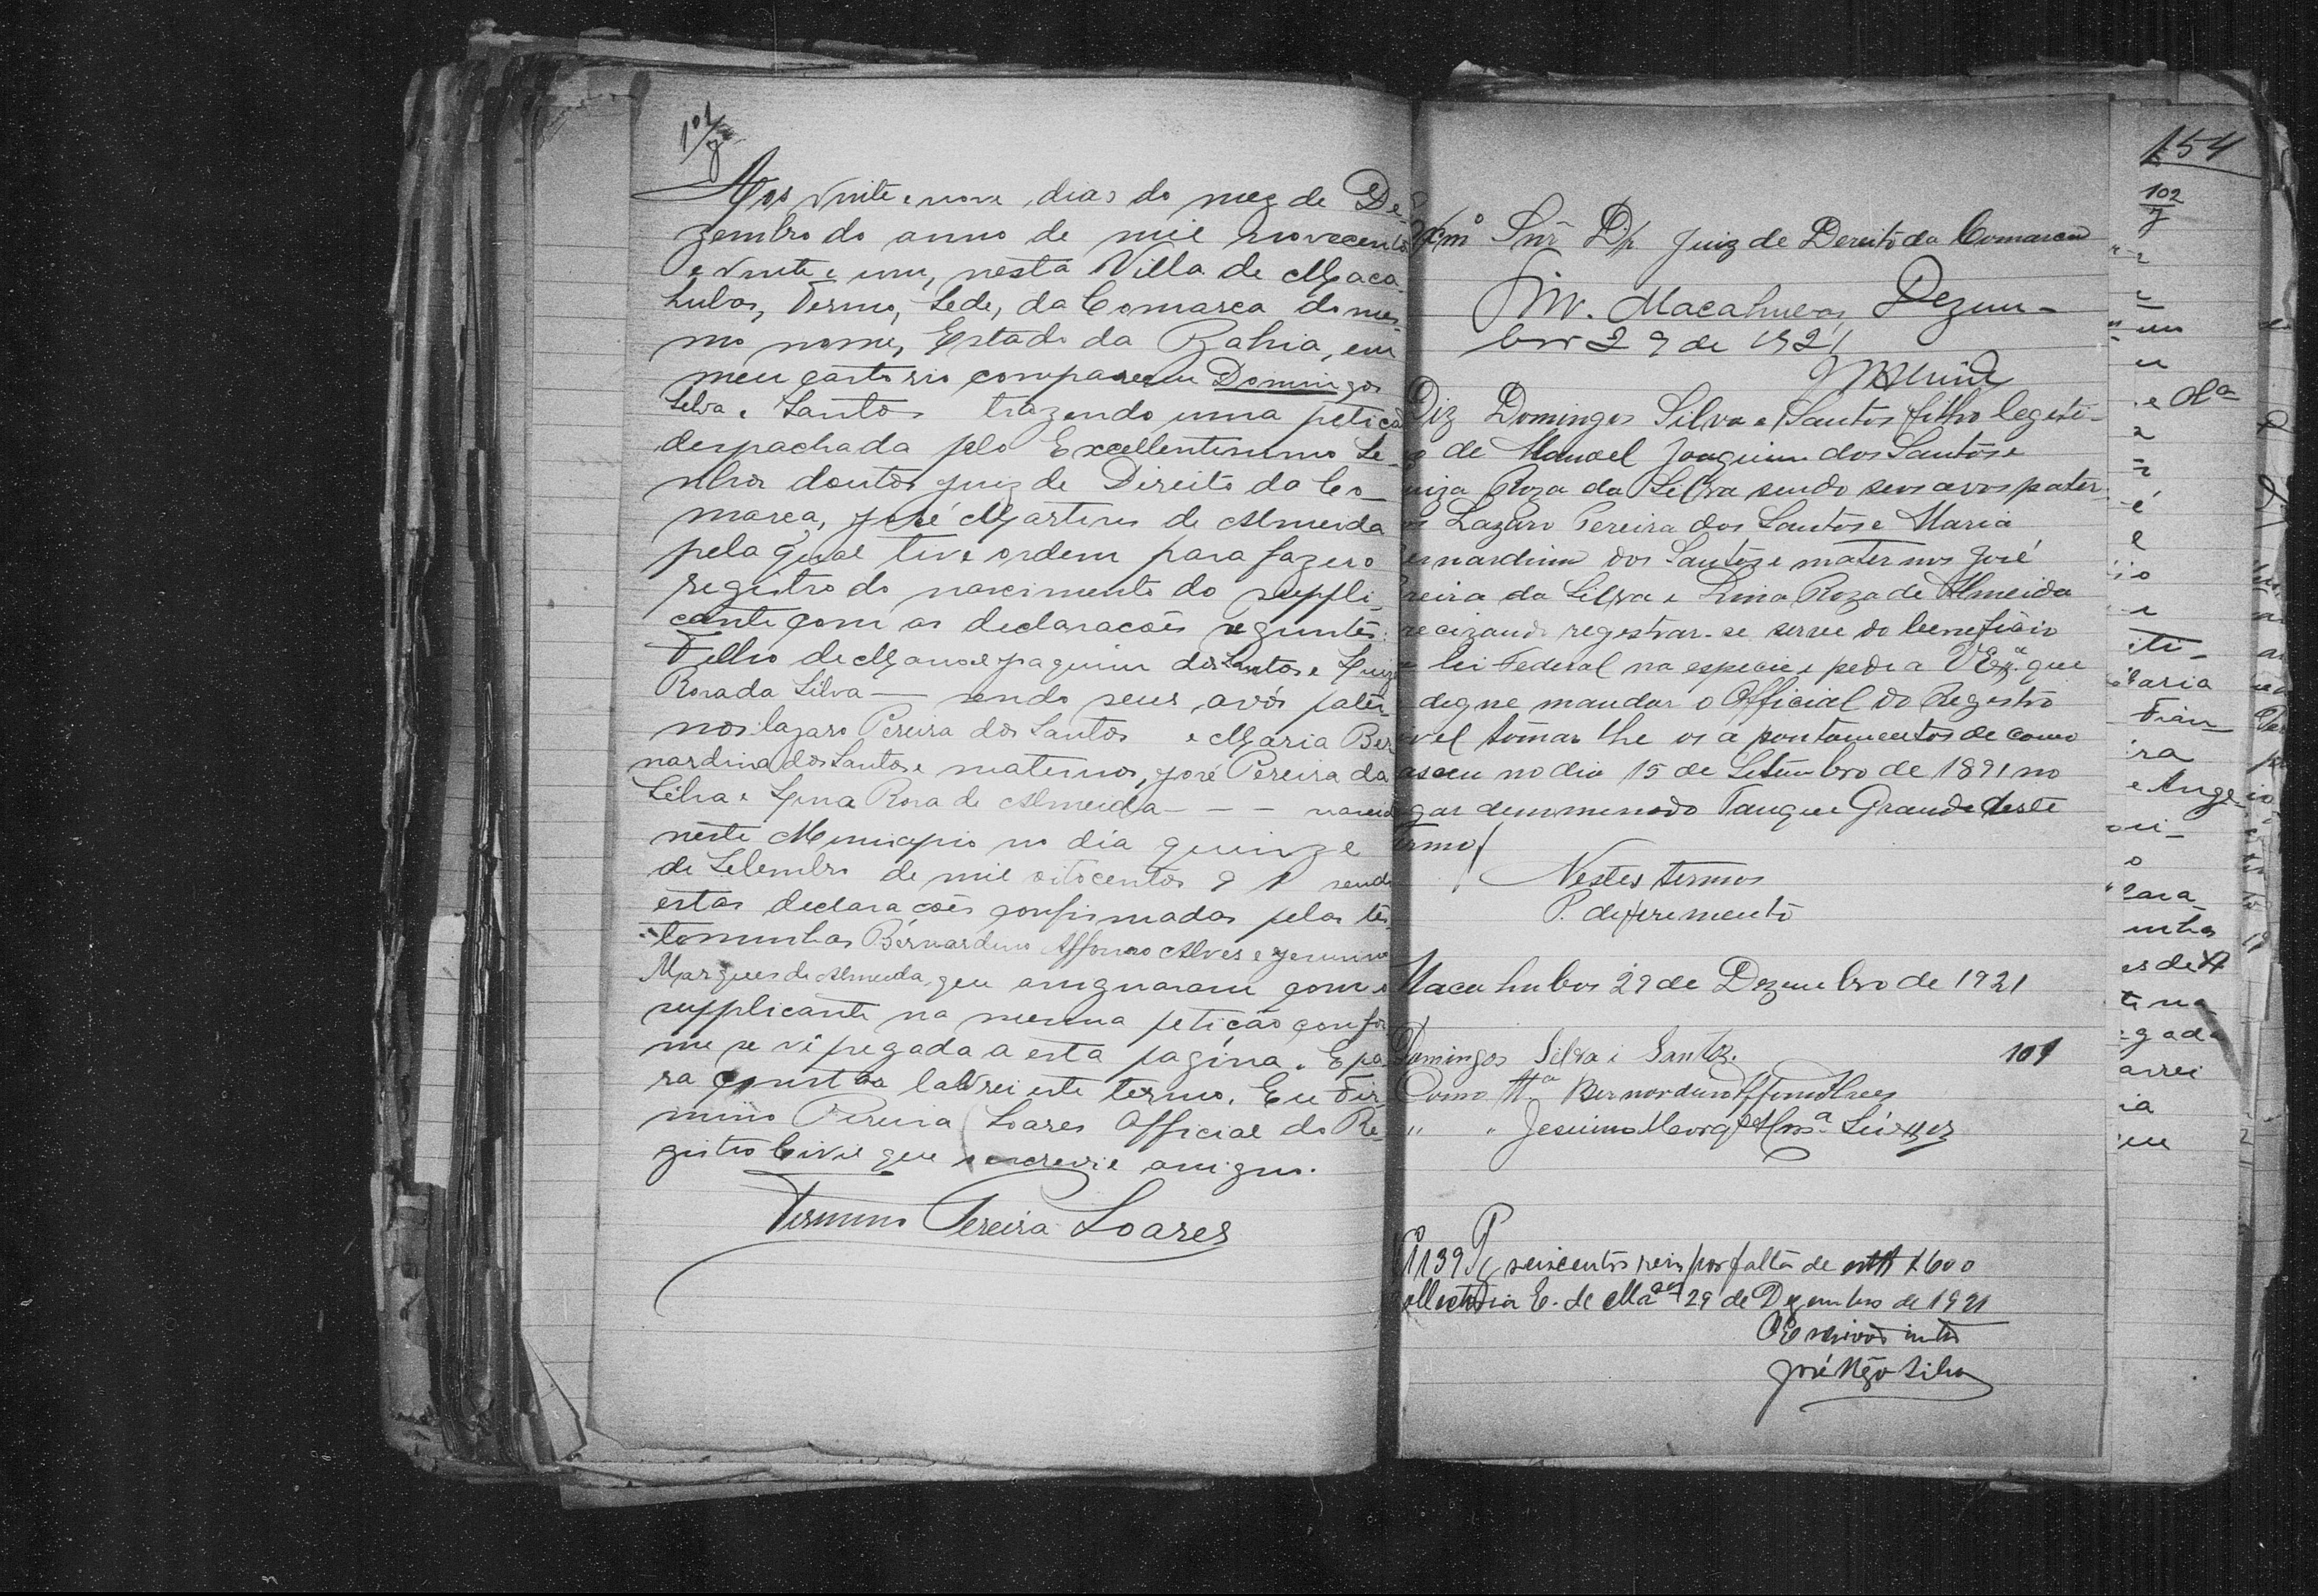 101
Aos vinte e nove dias do mez de De-
zembro do anno de mil novecentos
e vinte e um, nesta Villa de Maca-
hubas, Termo, Sede, da Comarca do mes-
mo nome, Estado da Bahia, em
meu cartorio compareceu Domingos
Silva e Santos trazendo uma petição
despachada pelo Excellentissimo Se-
nhor doutor Juiz de Direito da Co-
marca, José Martins de Almeida
pela qual tive ordem para fazer o
registro do nascimento do suppli-
cante com as declarações seguintes:
Filho de Manoel Joaquim dos Santos e Luiza
Rosa da Silva — sendo seus avós pater-
nos Lazaro Pereira dos Santos e Maria Ber-
nardina dos Santos e maternos, José Pereira da
Silva e Lina Rosa de Almeida - - - nascido
neste Municipio no dia quinze
de Setembro de mil oitocentos 91 sendo
estas declarações confirmadas pelas tes-
temunhas Bernardino Affonso Alves e Jesuino
Marques de Almeida, que assignaram com o
supplicante na mesma petição confor-
me se vê pregada a esta pagina. E pa-
ra constar lavrei este termo. Eu Fir-
mino Pereira Soares Official do Re-
gistro Civil que o escrevi e assigno.
Firmino Pereira Soares
154
102
Exmº Snr. Dr. Juiz de Dereito da Comarca
Sim. Macahubas, Dezem-
bro 29 de 1921
Diz Domingos Silva e Santos filho legeti-
mo de Manoel Joaquim dos Santos e
Luiza Roza da Silva sendo seos avos pater-
nos Lazaro Pereira dos Santos e Maria
Bernardina dos Santos e maternos José
Pereira da Silva e Lina Roza de Almeida
precizando registrar-se serve do beneficio
da lei Federal na especie e pede a V Exª. que
se digne mandar o Official do Registro
Civel tomar lhe os apontamentos de como
nasceu no dia 15 de Setembro de 1891 no
lugar denominado Tanque Grande deste
termo.
Nestes termos
P. deferemento
Macahubas 29 de Dezembro de 1921
Domingos Silva i Santos.
101
Como ttª Bernardino Affonso Alves
" " Jesuino Marqs de Almª
Nº 1139 Pg seiscentos reis por falta de estª $600
Collectoria E. de Macas 29 de Dezembro de 1921
O Escrivão intº
José Silva